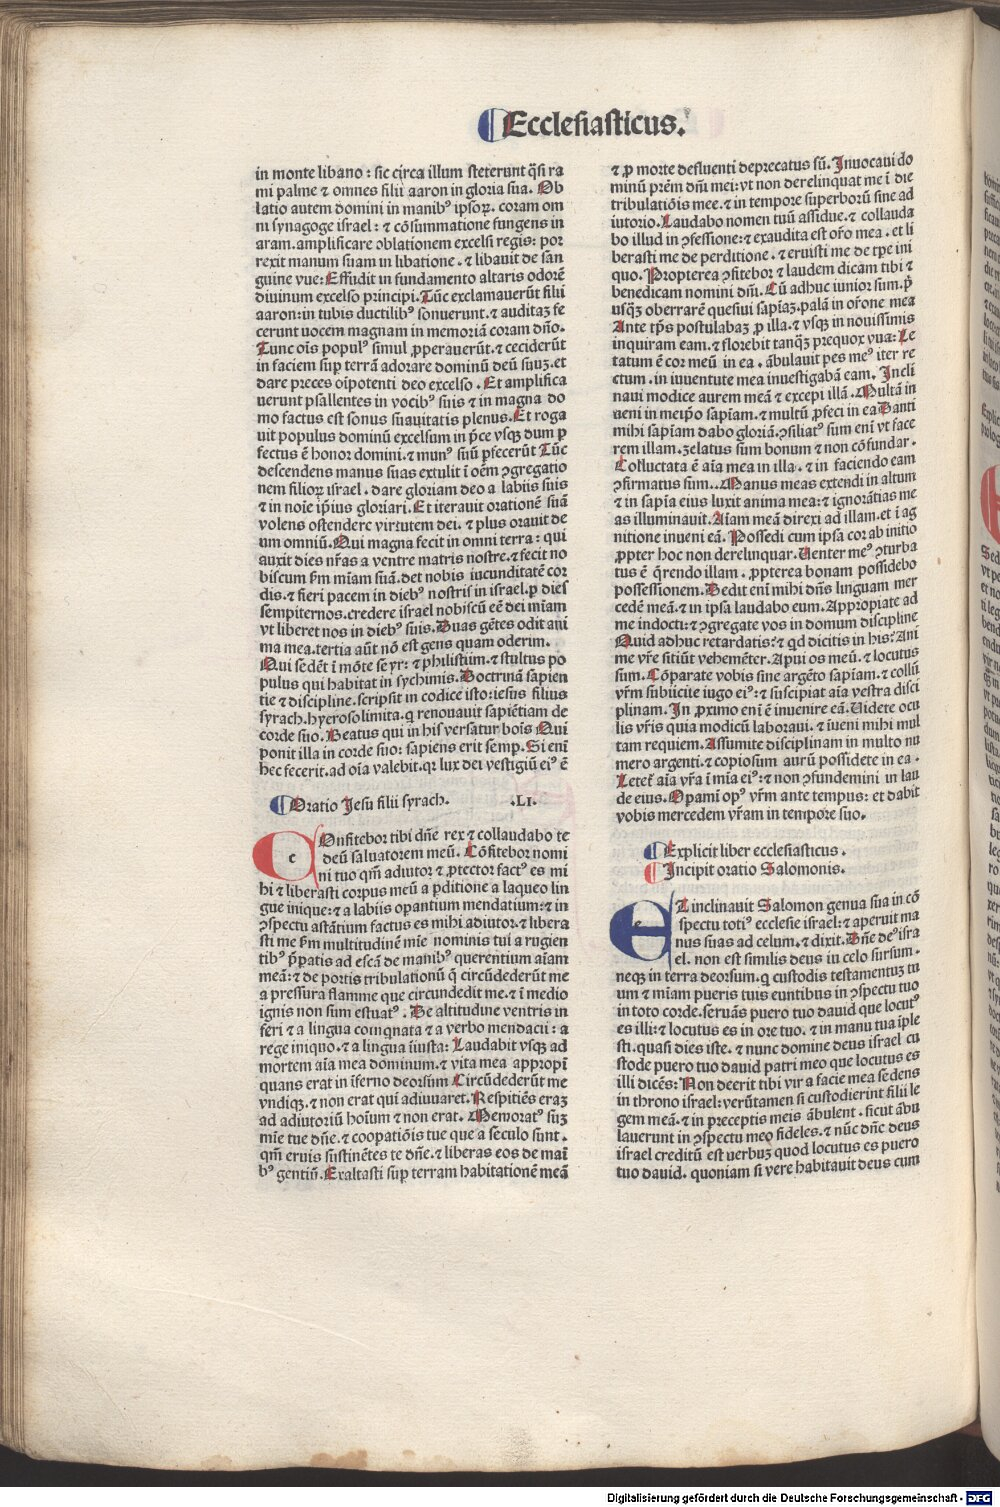 Ecclesiasticus.
in monte libano : sic circa illum steterunt q̄si ra
mi palme ⁊ omnes filii aaron in gloria sua. Ob
latio autem domini in manibꝰ ipsoꝝ. coram om
ni synagoge israel : ⁊ cōsummatione fungens in
aram. amplificare oblationem excelsi regis: por
rexit manum suam in libatione . ⁊ libauit de san
guine vue: Effudit in fundamento altaris odorē
diuinum excelso principi. Tūc exclamauerūt filii
aaron: in tubis ductilibꝰ sonuerunt. ⁊ auditaꝫ fe
cerunt uocem magnam in memoriā coram dn̄o.
Tunc oīs populꝰ simul ꝓperauerūt. ⁊ ceciderūt
in faciem sup terrā adorare dominū deū suuꝫ. et
dare preces oīpotenti deo excelso . Et amplifica
uerunt psallentes in vocibꝰ suis ⁊ in magna do
mo factus est sonus suauitatis plenus. Et roga
uit populus dominū excelsum in p̄ce vsqꝫ dum ꝑ
fectus ē honor domini. ⁊ munꝰ suū ꝑfecerūt Tūc
descendens manus suas extulit ī oēm ꝯgregatio
nem filioꝝ israel . dare gloriam deo a labiis suis
⁊ in noīe ip̄ius gloriari. Et iterauit orationē suā
volens ostendere virtutem dei. ⁊ plus orauit de
um omniū. Qui magna fecit in omni terra : qui
auxit dies nr̄as a ventre matris nostre. ⁊ fecit no
biscum ẜm mīam suā. det nobis iucunditatē cor
dis. ⁊ fieri pacem in diebꝰ nostris in israel. ꝑ dies
sempiternos. credere israel nobiscū eē dei mīam
vt liberet nos in diebꝰ suis. Duas gētes odit ani
ma mea. tertia aūt nō est gens quam oderim.
Qui sedēt ī mōte seyr: ⁊ philistiim. ⁊ stultus po
pulus qui habitat in sychimis. Doctrinā sapien
tie ⁊ discipline. scripsit in codice isto: iesus filius
syrach. hyerosolimita. q renouauit sapiētiam de
corde suo. Beatus qui in his versatur boīs Qui
ponit illa in corde suo: sapiens erit semp. Si enī
hec fecerit. ad oīa valebit. qꝛ lux dei vestigiū eiꝰ ē
Oratio Jesu filii syrach. .LI.
c Onfitebor tibi dn̄e rex ⁊ collaudabo te
deū saluatorem meū. Cōfitebor nomi
ni tuo qm̄ adiutor ⁊ ꝓtector factꝰ es mi
hi ⁊ liberasti corpus meū a ꝑditione a laqueo lin
gue inique: ⁊ a labiis opantium mendatium: ⁊ in
ꝯspectu astātium factus es mihi adiutor. ⁊ libera
sti me ẜm multitudinē mie nominis tui a rugien
tibꝰ p̄patis ad escā de manibꝰ querentium aīam
meā: ⁊ de portis tribulationū q̄ circūdederūt me
a pressura flamme que circundedit me. ⁊ ī medio
ignis non sum estuatꝰ . De altitudine ventris in
feri ⁊ a lingua coinqnata ⁊ a verbo mendacii: a
rege iniquo. ⁊ a lingua īiusta: Laudabit vsqꝫ ad
mortem aīa mea dominum. ⁊ vita mea appropī
quans erat in īferno deorsum Circūdederūt me
vndiqꝫ. ⁊ non erat qui adiuuaret. Respitiēs eraꝫ
ad adiutoriū hoīum ⁊ non erat. Memoratꝰ suꝫ
mīe tue dn̄e. ⁊ coopatiōis tue que a seculo sunt .
qm̄ eruis sustinētes te dn̄e. ⁊ liberas eos de mai
bꝰ gentiū. Exaltasti sup terram habitationē meā
⁊ ꝓ morte defluenti deprecatus sū. Inuocaui do
minū prēm dn̄i mei: vt non derelinquat me ī die
tribulatiōis mee. ⁊ in tempore superborū sine ad
iutorio. Laudabo nomen tuū assidue. ⁊ collauda
bo illud in ꝯfessione: ⁊ exaudita est or̄o mea . et li
berasti me de perditione . ⁊ eruisti me de tp̄e ini
quo. Propterea ꝯfitebor ⁊ laudem dicam tibi ⁊
benedicam nomini dn̄i. Cū adhuc iunior sum. p̄
usqꝫ oberrarē quesiui sapīaꝫ. palā in or̄one mea
Ante tp̄s postulabaꝫ ꝓ illa. ⁊ vsqꝫ in nouissimis
inquiram eam. ⁊ florebit tanqꝫ prequox vua: Le
tatum ē cor meū in ea . ābulauit pes meꝰ iter re
ctum . in iuuentute mea inuestigabā eam. Incli
naui modice aurem meā ⁊ excepi illā . Multā in
ueni in meip̄o sapīam. ⁊ multū ꝓfeci in ea Danti
mihi sapīam dabo gloriā. ꝯsiliatꝰ sum enī vt face
rem illam. zelatus sum bonum ⁊ non cōfundar .
Colluctata ē aīa mea in illa . ⁊ in faciendo eam
ꝯfirmatus sum.. Manus meas extendi in altum
⁊ in sapīa eius luxit anima mea: ⁊ ignorātias me
as illuminauit. Aīam meā direxi ad illam. et ī ag
nitione inueni eā. Possedi cum ipsa cor ab initio
ꝓpter hoc non derelinquar. Uenter meꝰ ꝯturba
tus ē q̄rendo illam . ꝓpterea bonam possidebo
possessionem. Dedit enī mihi dn̄s linguam mer
cedē meā. ⁊ in ipsa laudabo eum. Appropiate ad
me indocti: ⁊ ꝯgregate vos in domum discipline
Quid adhuc retardatis: ⁊ qd dicitis in his: Ani
me vr̄e sitiūt vehemēter. Apui os meū. ⁊ locutus
sum. Cōparate vobis sine argēto sapīam. ⁊ collū
vr̄m subiicite iugo eiꝰ: ⁊ suscipiat aīa vestra disci
plinam. In ꝓximo enī ē inuenire eā. Uidete ocu
lis vr̄is quia modicū laboraui. ⁊ īueni mihi mul
tam requiem. Assumite disciplinam in multo nu
mero argenti. ⁊ copiosum aurū possidete in ea .
Letet̄ aīa vr̄a ī mīa eiꝰ: ⁊ non ꝯfundemini in lau
de eius. Opami opꝰ vr̄m ante tempus: et dabit
vobis mercedem vr̄am in tempore suo.
Explicit liber ecclesiasticus .
Incipit oratio Salomonis.
e T inclinauit Salomon genua sua in cō
spectu totiꝰ ecclesie israel: ⁊ aperuit ma
nus suas ad celum. ⁊ dixit. Dn̄e deꝰ isra
el. non est similis deus in celo sursum .
neqꝫ in terra deorsum. q custodis testamentuꝫ tu
um ⁊ mīam pueris tuis euntibus in ꝯspectu tuo
in toto corde. seruās puero tuo dauid que locutꝰ
es illi: ⁊ locutus es in ore tuo. ⁊ in manu tua īple
sti. quasi dies iste. ⁊ nunc domine deus israel cu
stode puero tuo dauid patri meo que locutus es
illi dicēs: Non deerit tibi vir a facie mea sedens
in throno israel: verūtamen si custodierint filii le
gem meā. ⁊ in preceptis meis ābulent . sicut ābu
lauerunt in ꝯspectu meo fideles. ⁊ nūc dn̄e deus
israel creditū est verbuꝫ quod locutus es puero
tuo dauid. quoniam si vere habitauit deus cum
Digitalisierung gefördert durch die Deutsche Forschungsgemeinschaft - DFG